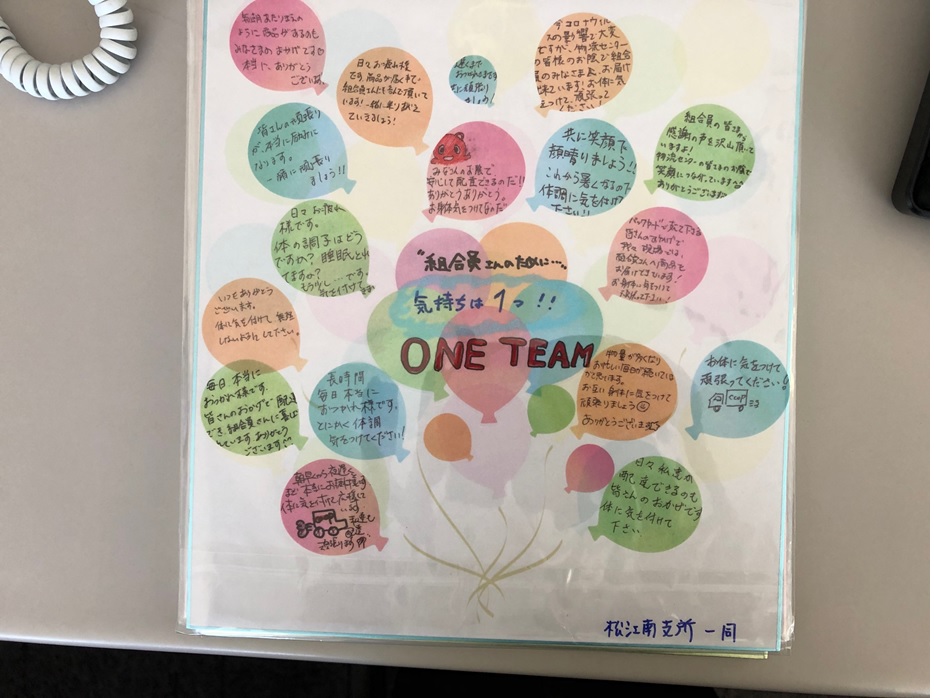 毎朝あたり前の
ように商品があるのも
みなさまのおかげです
本当に、ありがとう
ございます
日々お疲れ様
です。商品が届くまで
組合員さんも喜んで頂いて
います!一緒に乗りこえ
ていきましょう!
遅くまで
おつかれさまです
今コロナウイル
スの影響で大変
ですが、物流センター
の皆様のお陰で組合
員のみなさまに、お届け
出来ています!お体に気
をつけて、頑張って
ください!!
皆さんの頑張り
が、本当に励みに
なります。
一緒に頑張り
ましょう!!
みなさんのお陰で
安心して配達できるのだ!!
ありがとうありがとう。
お身体気をつけてなのだ
共に笑顔で
顔晴りましょう!!
これから暑くなるので
体調に気を付けて
下さい!!
組合員の皆様から
感謝の声を沢山頂いて
いますよ!
物流センターの皆さまのお陰で
笑顔につながっています
ありがとうございます
日々お疲れ
様です。
体の調子はどう
ですか?睡眠とれ
てますか?
もう少し...です
気を付けて
皆さんのおかげで
我々現場では、
組合員さんへ商品を
お届けできています!
お身体に気をつけて
頑張って下さい!
"組合員さんのために...."
気持ちは1つ!!
ONE TEAM
いつもありがとう
ございます。
体に気を付けて無理
しないようにして下さい。
物量が多くなり
お忙しい毎日が続いている
かと思います。
お互い身体に気をつけて
頑張りましょう
ありがとうございます
お体に気をつけて
頑張ってください!!
COOP
毎日本当に
おつかれ様です。
皆さんのおかげで配達
でき、組合員さんに喜ばれ
ています ありがとう
ございます!
長時間
毎日本当に
おつかれ様です。
とにかく体調
気をつけてください!
朝早くから夜遅く
まで本当にお疲れ様です
体に気を付けて
日々私達が
配達できるのも
皆さんのおかげです
体に気を付けて
下さい
松江南支所 一同